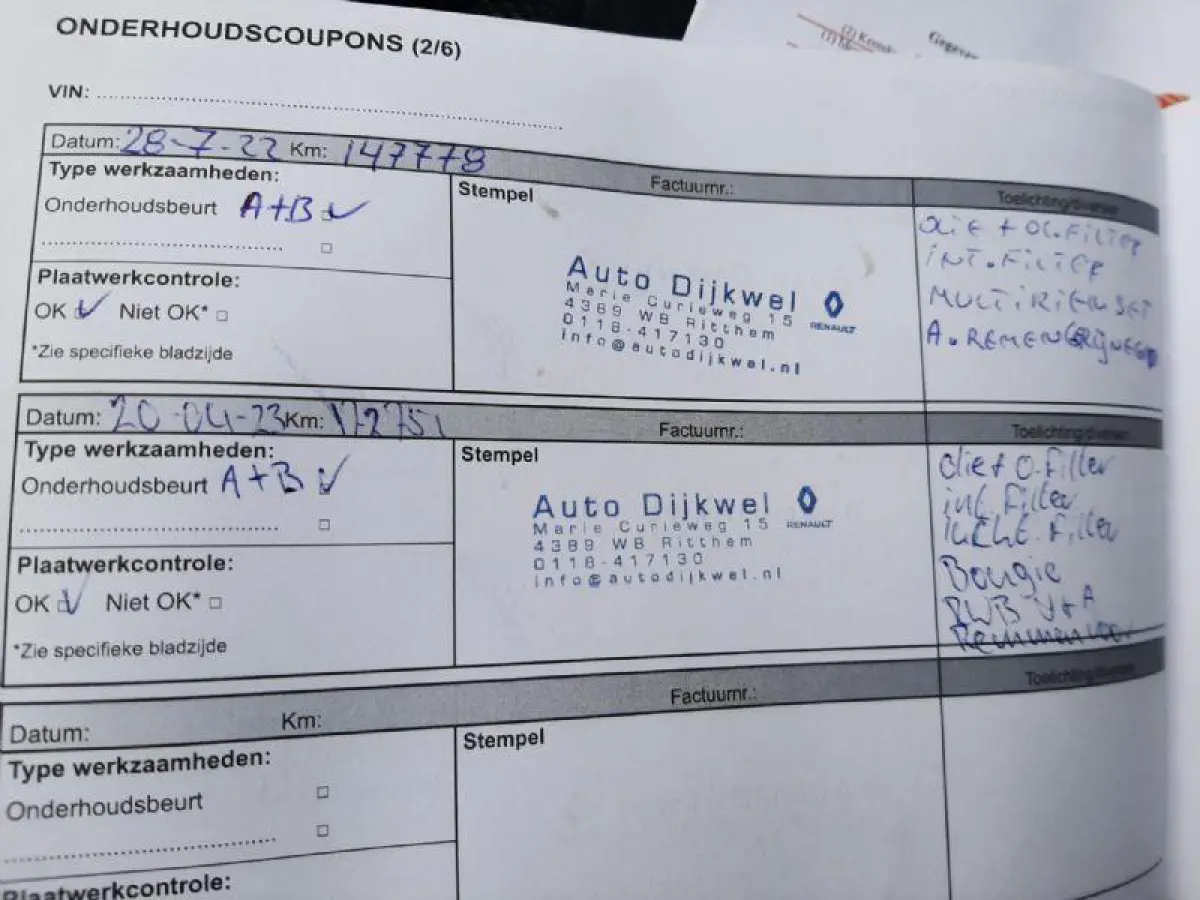 ONDERHOUDSCOUPONS (2/6)
VIN:
Datum: 28-7-22 Km: 147778
Factuurnr.:
Toelichting/diversen
Type werkzaamheden:
Onderhoudsbeurt A+B
Plaatwerkcontrole:
OK Niet OK*
*Zie specifieke bladzijde
Stempel
Auto Dijkwel
Marie Curieweg 15
4389 WB Ritthem
0118-417130
info@autodijkwel.nl
RENAULT
OLIE + OL.FILTER
INT.FILTER
MULTIRIEMSET
A.REMEN
Datum: 20-04-23 Km: 172751
Factuurnr.:
Toelichting/diversen
Type werkzaamheden:
Onderhoudsbeurt A+B
Plaatwerkcontrole:
OK Niet OK*
*Zie specifieke bladzijde
Stempel
Auto Dijkwel
Marie Curieweg 15
4389 WB Ritthem
0118-417130
info@autodijkwel.nl
RENAULT
Olie+ O.Filter
int.Filter
lucht.Filter
Bougie
RWB V+A
Remmen voor
Datum: Km:
Factuurnr.:
Type werkzaamheden:
Onderhoudsbeurt
Stempel
Plaatwerkcontrole: